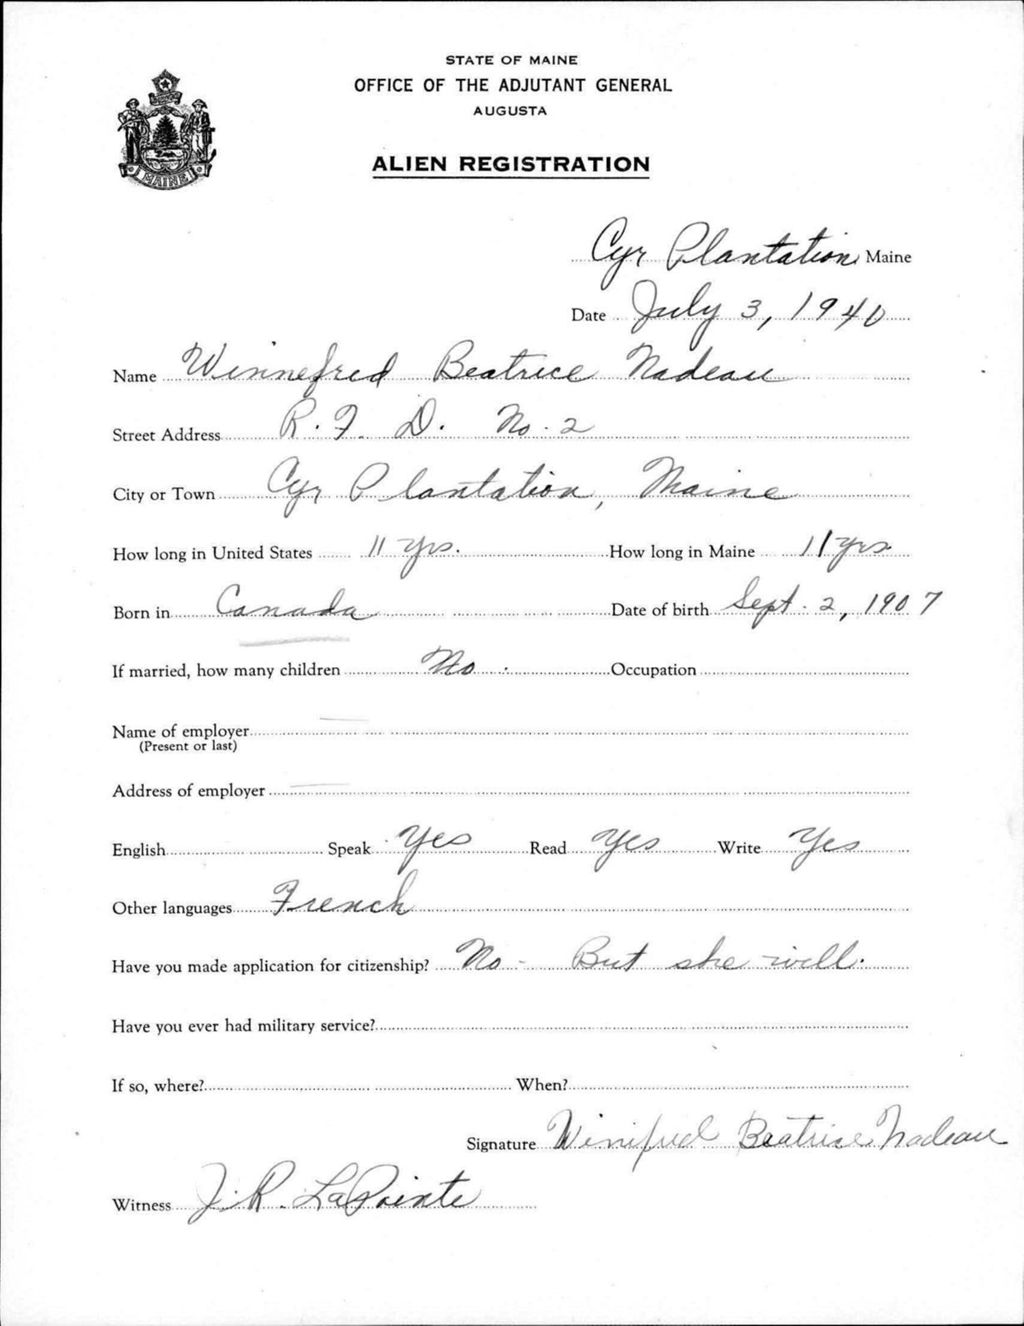 STATE OF MAINE
OFFICE OF THE ADJUTANT GENERAL
AUGUSTA
ALIEN REGISTRATION
MAINE
Cyr Plantation, Maine
Date July 3, 1940
Name Winnefred Beatrice Nadeau
Street Address R. F. D. No. 2
City or Town Cyr Plantation, Maine
How long in United States 11 yrs. How long in Maine 11 yrs
Born in Canada Date of birth Sept. 2, 1907
If married, how many children No. Occupation
Name of employer
(Present or last)
Address of employer
English Speak Yes Read Yes Write Yes
Other languages French
Have you made application for citizenship? No - But she will.
Have you ever had military service?
If so, where? When?
Signature Winifred Beatrice Nadeau
Witness J. R. LaPointe